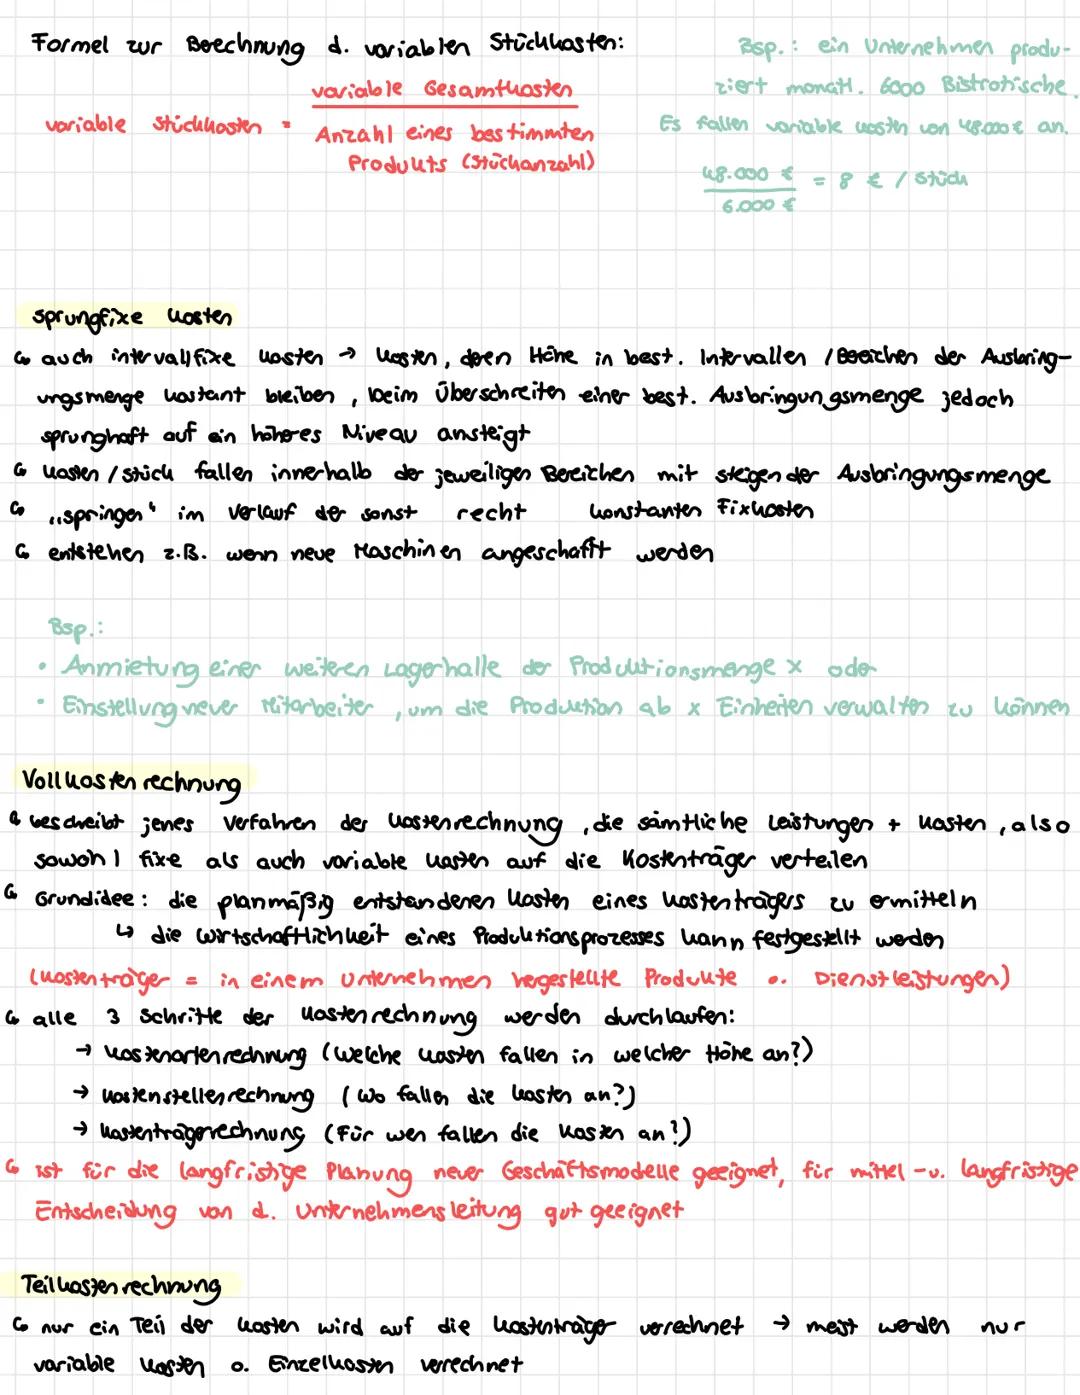 Formel zur Berechnung d. variablen Stückkosten:
variable Stückkosten = variable Gesamtkosten
Anzahl eines bestimmten
Produkts (Stückanzahl)
Bsp.: ein Unternehmen produ-
ziert monatl. 6000 Bistrotische.
Es fallen variable Kosten von 48.000 € an.
48.000 €
6.000 €
= 8 € / Stück
sprungfixe Kosten
↳ auch intervallfixe Kosten → Kosten, deren Höhe in best. Intervallen / Bereichen der Ausbring-
ungsmenge kostant bleiben, beim Überschreiten einer best. Ausbringungsmenge jedoch
sprunghaft auf ein höheres Niveau ansteigt
↳ Kosten / Stück fallen innerhalb der jeweiligen Bereichen mit steigender Ausbringungsmenge
↳ „springen" im Verlauf der sonst recht konstanten Fixkosten
↳ entstehen z.B. wenn neue Maschinen angeschafft werden
Bsp.:
• Anmietung einer weiteren Lagerhalle der Produktionsmenge x oder
• Einstellung neuer Mitarbeiter, um die Produktion ab x Einheiten verwalten zu können
Vollkostenrechnung
↳ beschreibt jenes Verfahren der Kostenrechnung, die sämtliche Leistungen + Kosten, also
sowohl fixe als auch variable Kosten auf die Kostenträger verteilen
↳ Grundidee: die planmäßig entstandenen Kosten eines Kostenträgers zu ermitteln
↳ die Wirtschaftlichkeit eines Produktionsprozesses kann festgestellt werden
(Kostenträger = in einem Unternehmen hergestellte Produkte o. Dienstleistungen)
↳ alle 3 Schritte der Kostenrechnung werden durchlaufen:
→ Kostenartenrechnung (Welche Kosten fallen in welcher Höhe an?)
→ Kostenstellenrechnung (Wo fallen die Kosten an?)
→ Kostenträgerrechnung (Für wen fallen die Kosten an?)
↳ ist für die langfristige Planung neuer Geschäftsmodelle geeignet, für mittel-u. langfristige
Entscheidung von d. Unternehmensleitung gut geeignet
Teilkostenrechnung
↳ nur ein Teil der Kosten wird auf die Kostenträger verrechnet → meist werden nur
variable Kosten o. Einzelkosten verrechnet